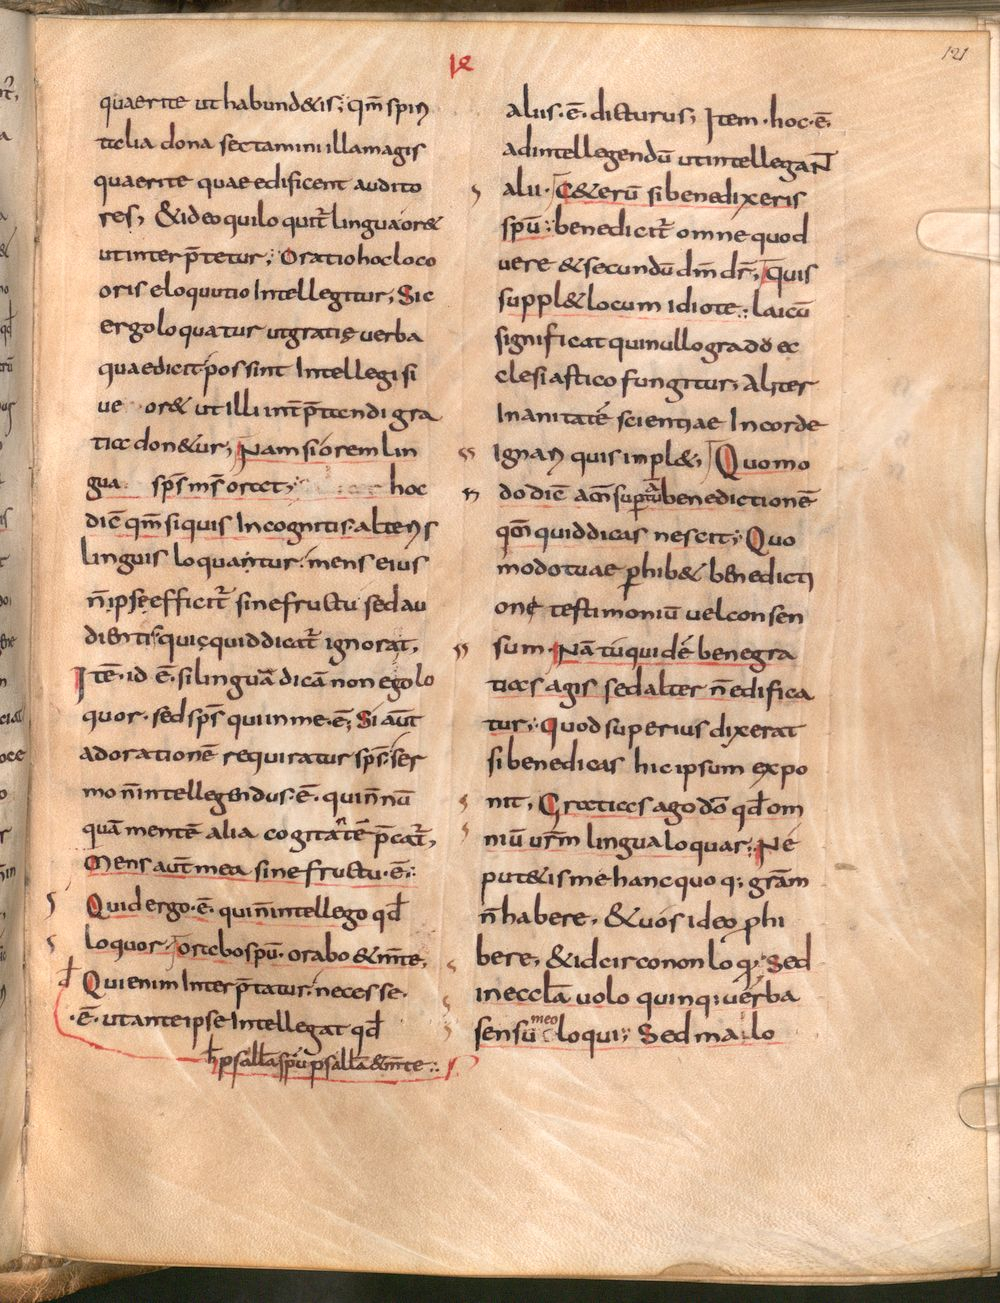 121
quaerite ut habund&is; qm̄ spiri
talia dona sectamini illa magis
quaerite quae edificent audito
res; &ideo qui loquit̄ lingua or&
ut interp̄tetur; Oratio hoc loco
oris eloquutio Intellegitur; Sic
ergo loquatur ut gratię uerba
quae dicit possint Intellegi si
ue or& ut illi int̄p̄tandi gra
tia don&ur; Nam si orem lin
gua sp̄s m̄s orat; hoc
diē qm̄ si quis Incognitis alteris
linguis loquantur mens eius
n̄ ipse efficit̄ sine fructu sed au
dientis qui quid dicat̄ ignorat,
Itē id ē. si linguā dicā non ego lo
quor. sed sp̄s qui in me. ē; Si aūt
ad orationē requiratur sp̄s. ser
mo n̄ intellegendus. ē. qui n̄ nū
quā mentē alia cogitātē p̄cat̄,
Mens aūt mea sine fructu. ē.
Quid ergo. ē. qui n̄ intellego qđ
loquor. orabo sp̄u. orabo &m̄te,
Qui enim Interp̄tatur. necesse.
.ē. ut ante ipse Intellegat qđ
psallā sp̄u psallā &m̄te
aliis. ē. dicturus; Item. hoc. ē.
ad intellegendū ut intellegaNT
alii. C&erū si benedixeris
sp̄u; benedicit̄ omne quod
uere & secundū dm̄ dr̄; quis
suppl& locum idiote; laicū
significat qui nullo gradō ec
clesiastico fungitur; Aliter
Inanitatē scientiae In corde
ignari quis inpl&; Quomo
do diē am̄ sup tuā benedictionē
qm̄ quid dicas nescit; Quo
modo tuae phib& benedicti
one testimoniū uel consen
sum. Nā tu quidē bene gra
tias agis sed alter n̄ edifica
tur; Quod superius dixerat
si benedicas hic ipsum expo
nit, Gratias ago dō qđ om
niū ur̄m lingua loquar; Ne
put&is me hanc quoq; gr̄am
n̄ habere, &uos ideo phi
bere, &idcirco non loq̄; Sed
in eccl̄a uolo quinq; uerba
sensū meo loqui; Sed malo